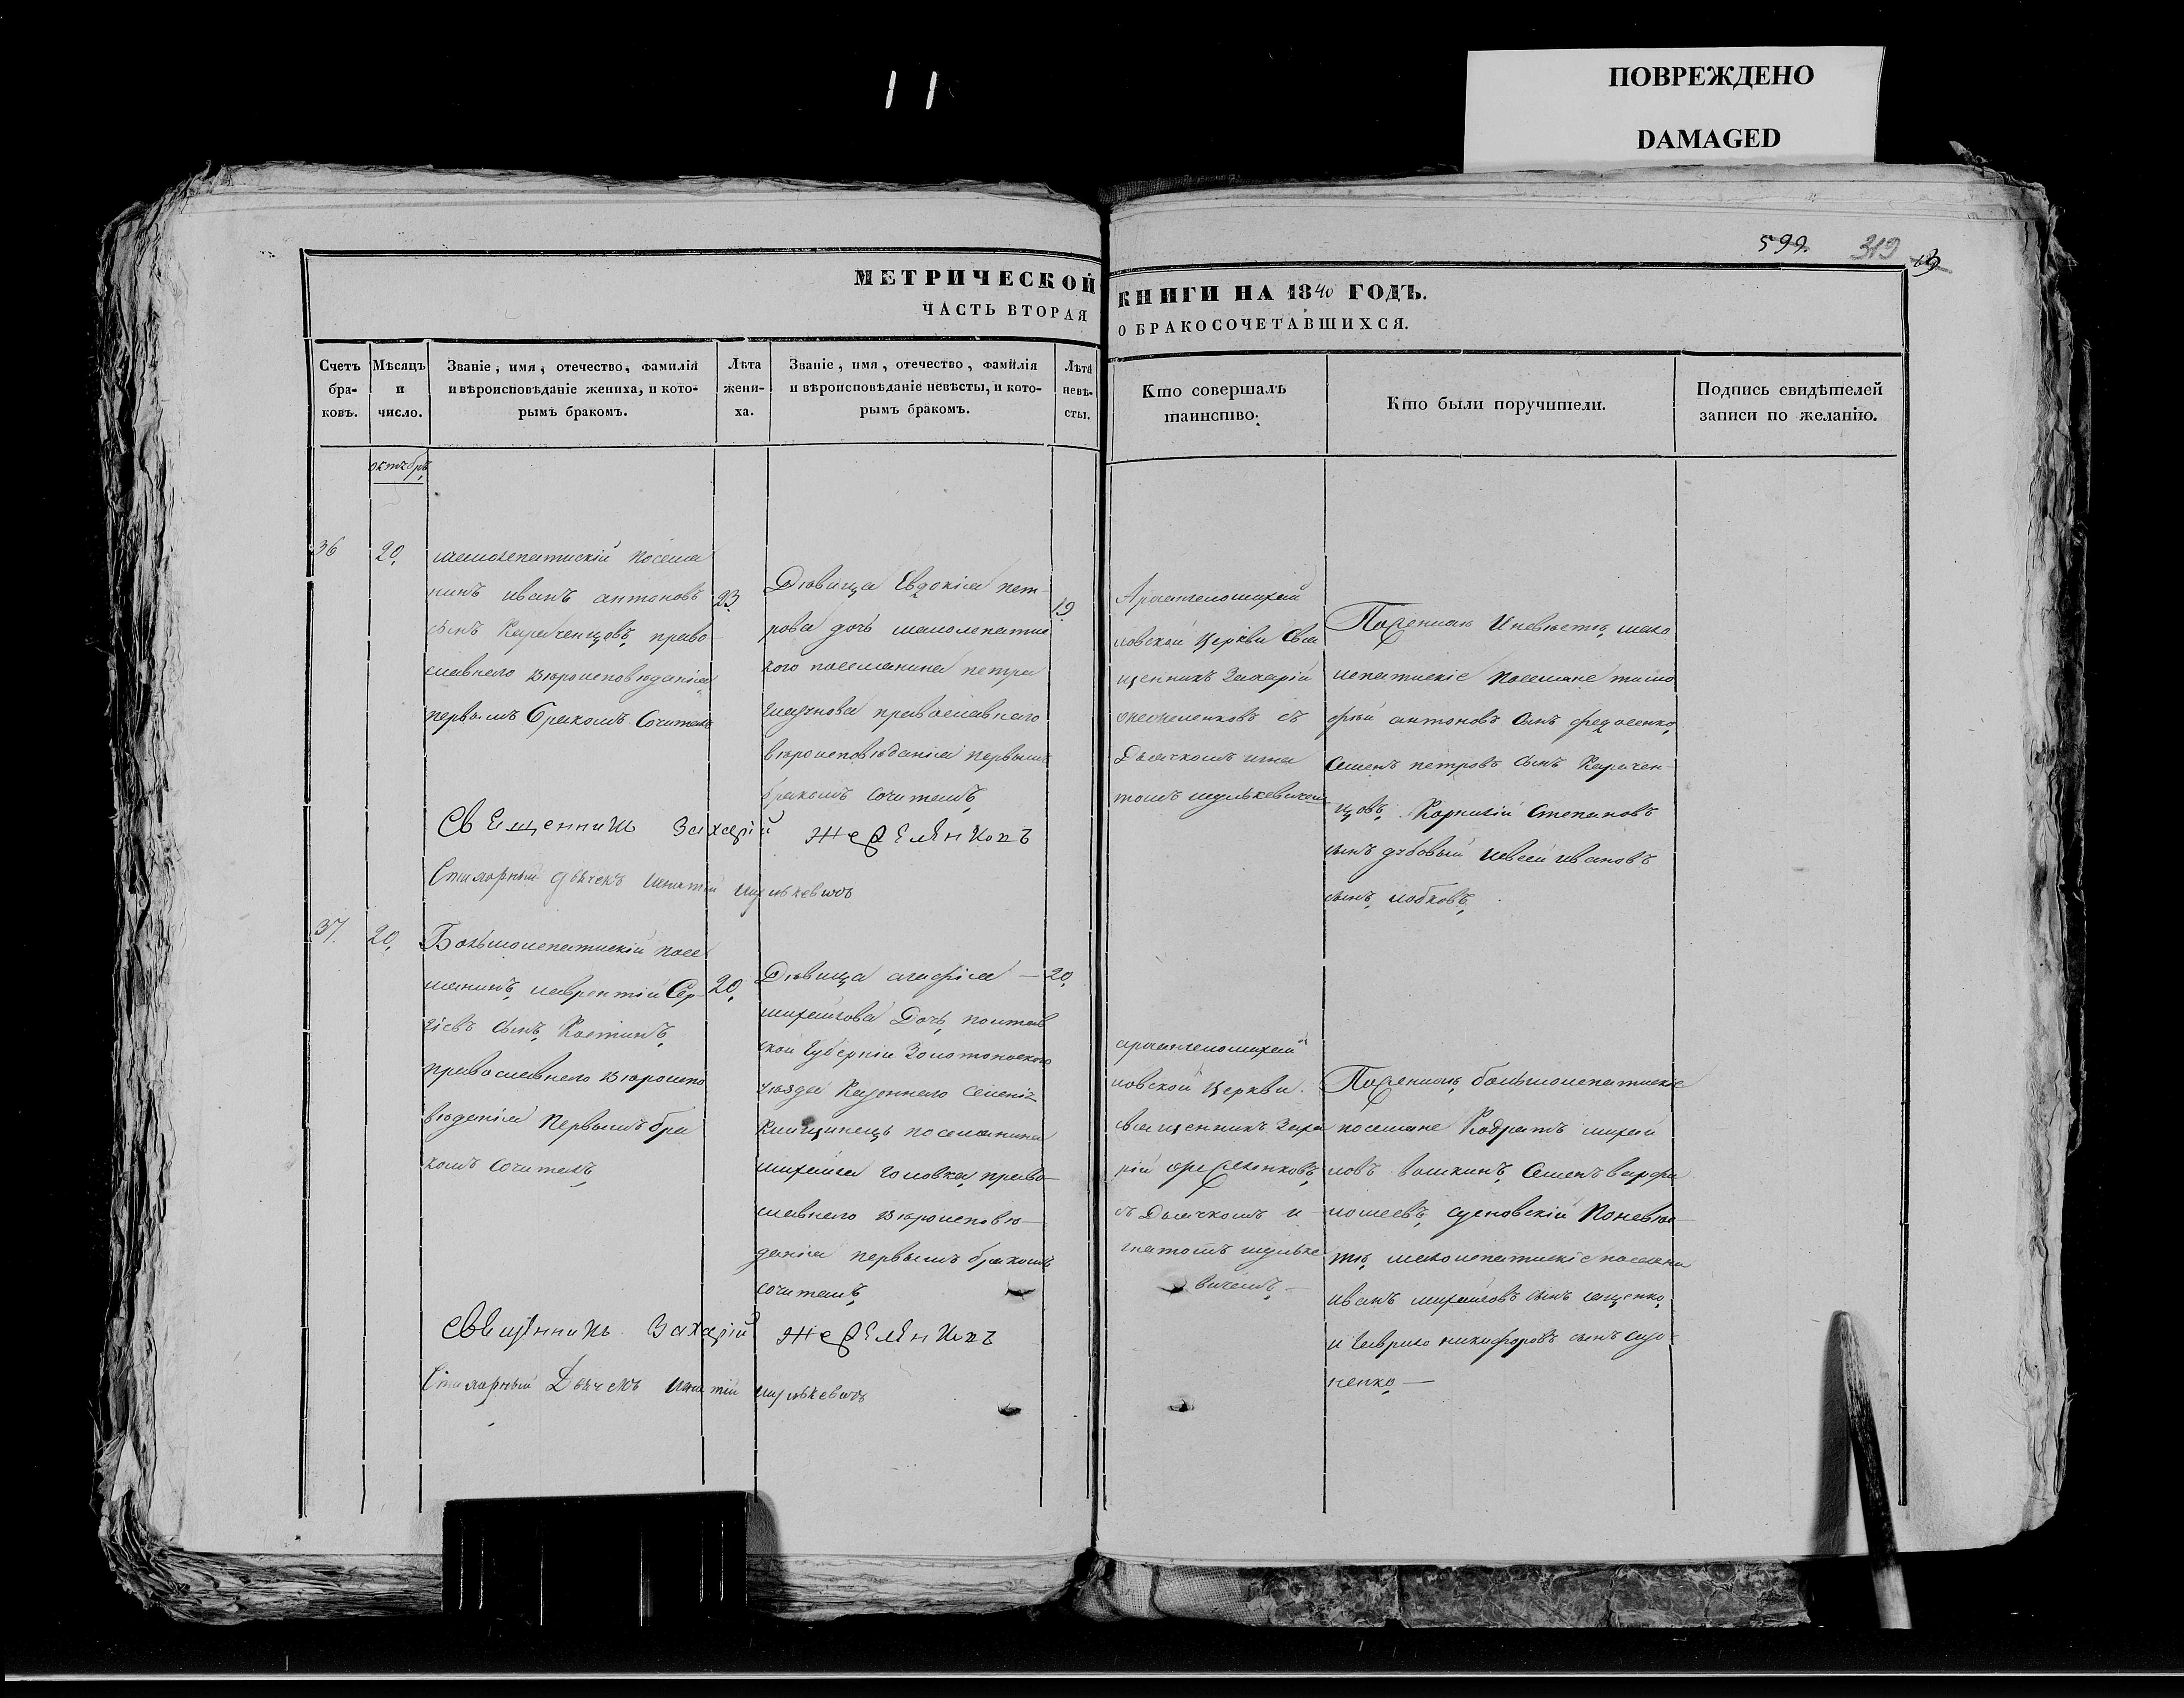 ПОВРЕЖДЕНО
DAMAGED
599. 319
МЕТРИЧЕСКОЙ КНИГИ НА 1840 ГОДЪ.
ЧАСТЬ ВТОРАЯ О БРАКОСОЧЕТАВШИХСЯ.
Счетъ
бра-
ковъ.
Мѣсяцъ
и
число.
Званіе, имя, отечество, фамилія
и вѣроисповѣданіе жениха, и кото-
рымъ бракомъ.
Лѣта
жени-
ха.
Званіе, имя, отечество, фамилія
и вѣроисповѣданіе невѣсты, и кото-
рымъ бракомъ.
Лѣта
невѣ-
сты.
Кто совершалъ
таинство.
Кто были поручители.
Подпись свидѣтелей
записи по желанію.
октябрь
36
20,
малолепатискій посела
нинъ иванъ антоновъ
сынъ Караченцовъ, право-
славнаго вѣроисповѣданія
первымъ бракомъ Сочитанъ
23
Дѣвица Евдокія пет-
рова дочь малолепатис
кого поселянина петра
православнаго
вѣроисповѣданія первымъ
бракомъ сочитанъ,
19
Архангеломихай
ловской церкви Свя
щенникъ Захарій
съ
Дьячкомъ игна
томъ
По женихѣ и невѣстѣ, мало
лепатискіе поселяне тимо
фѣй антоновъ сынъ федосенко,
Семенъ петровъ сынъ Карачен-
цовъ, Корнилій Степановъ
сынъ дубовый иванов
сынъ, лобковъ,
Священникъ Захарій
дьячекъ игнатій
37.
20,
Большолепатискій посе
лянинъ, лаврентій Сер-
гіевъ сынъ, Костинъ,
православнаго вѣроиспо
вѣданія Первымъ бра
комъ сочитанъ,
20,
Дѣвица агафія —
михайлова Дочь, полтав
ской губерніи Золотоноского
уѣзда Казеннаго селенія
Клищинецъ поселянина
михайла головка, право-
славнаго вѣроисповѣ-
данія первымъ бракомъ
сочитанъ,
20,
архангеломихай
ловской церкви.
священникъ Заха
рій
съ Дьячкомъ и-
гнатомъ
вичемъ, —
По женихѣ, большолепатискіе
поселяне Кодратъ михай
ловъ Семенъ варфа
ломеевъ, По невѣс-
тѣ, малолепатискіе поселяне
иванъ михайловъ сынъ ищенко,
и гаврило никифоровъ сынъ
ненко, —
Священникъ Захарій
Дьячекъ игнатій